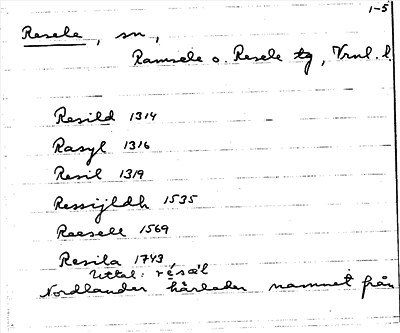 1-5
Resele, sn,
Ramsele o. Resele tg, Vrnl. l.
Resild 1314
Rasyl 1316
Resil 1319
Ressijldh 1535
Reesell 1569
Resila 1743
Uttal: résæl
Nordlander härleder namnet från